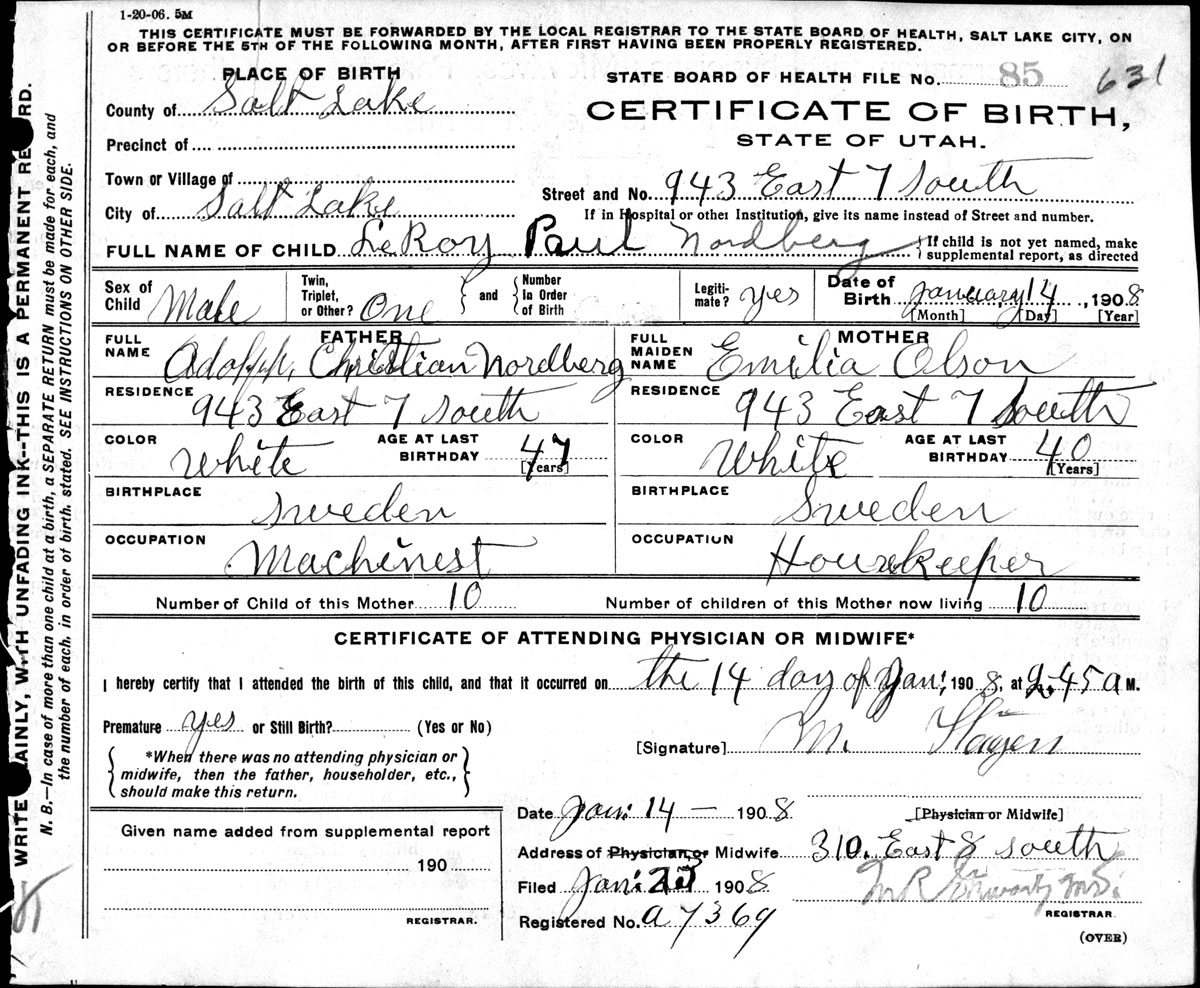 1-20-06. 5M
THIS CERTIFICATE MUST BE FORWARDED BY THE LOCAL REGISTRAR TO THE STATE BOARD OF HEALTH, SALT LAKE CITY, ON
OR BEFORE THE 5TH OF THE FOLLOWING MONTH, AFTER FIRST HAVING BEEN PROPERLY REGISTERED.
PLACE OF BIRTH
STATE BOARD OF HEALTH FILE No. 85 631
County of Salt Lake
CERTIFICATE OF BIRTH,
STATE OF UTAH.
Precinct of
Town or Village of
Street and No. 943 East 7 South
City of Salt Lake
If in Hospital or other Institution, give its name instead of Street and number.
FULL NAME OF CHILD LeRoy Paul Nordberg
If child is not yet named, make
supplemental report, as directed
Sex of Child Male
Twin, Triplet, or Other? One
and Number In Order of Birth
Legiti-mate? yes
Date of Birth January 14, 1908
[Month] [Day] [Year]
FATHER
FULL NAME Christian Nordberg
RESIDENCE 943 East 7 South
COLOR White AGE AT LAST BIRTHDAY 47 [Years]
BIRTHPLACE Sweden
OCCUPATION Machinest
MOTHER
FULL MAIDEN NAME Emilia Olson
RESIDENCE 943 East 7 South
COLOR White AGE AT LAST BIRTHDAY 40 [Years]
BIRTHPLACE Sweden
OCCUPATION Housekeeper
Number of Child of this Mother 10 Number of children of this Mother now living 10
CERTIFICATE OF ATTENDING PHYSICIAN OR MIDWIFE*
I hereby certify that I attended the birth of this child, and that it occurred on the 14 day of Jan: 1908, at 2.45 a M.
Premature yes or Still Birth? (Yes or No)
[Signature] M.
*When there was no attending physician or
midwife, then the father, householder, etc.,
should make this return.
Date Jan: 14 - 1908
[Physician or Midwife]
Given name added from supplemental report
190
REGISTRAR.
Address of Physician or Midwife 310. East 8 South
Filed Jan: 23 1908
REGISTRAR.
Registered No. a 7369
(OVER)
WRITE PLAINLY, WITH UNFADING INK--THIS IS A PERMANENT RECORD.
N. B.—In case of more than one child at a birth, a SEPARATE RETURN must be made for each, and
the number of each, in order of birth, stated. SEE INSTRUCTIONS ON OTHER SIDE.